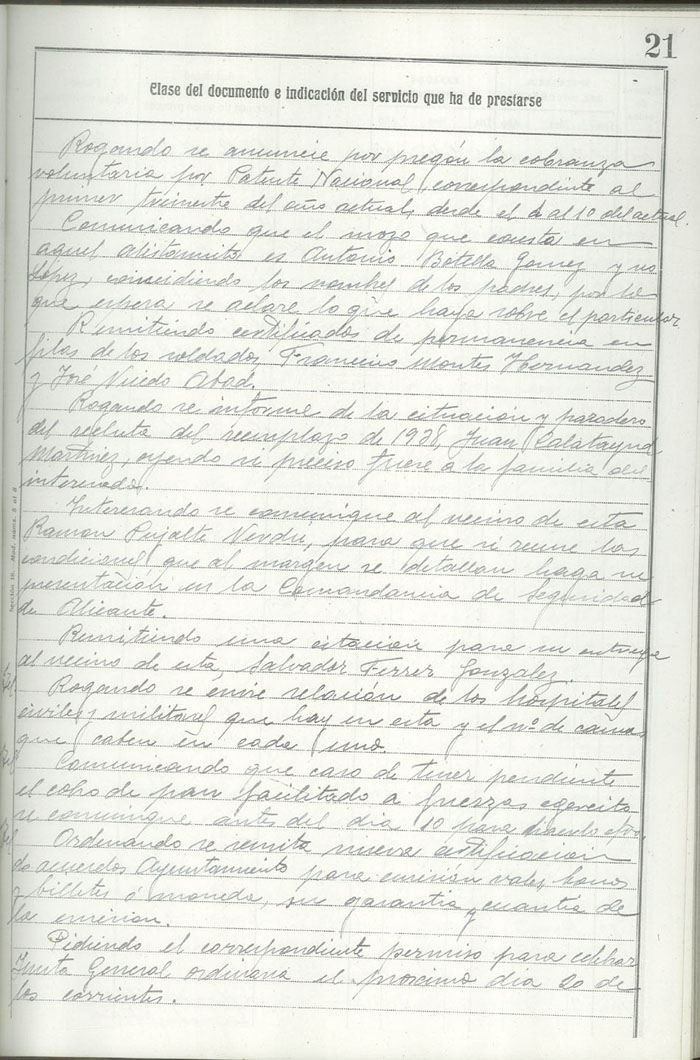 21
Clase del documento e indicación del servicio que ha de prestarse
Rogando se anuncie por pregón la cobranza
voluntaria por Patente Nacional, correspondiente al
primer trimestre del año actual, desde el 1 al 10 del actual.
Comunicando que el mozo que consta en
aquel alistamiento es Antonio Botella Gomez y no
López, coincidiendo los nombres de los padres, por lo
que espera se aclare lo que haya sobre el particular
Remitiendo certificados de permanencia en
filas de los soldados, Francisco Montes Hernandez
y José Abad.
Rogando se informe de la situación y paradero
del recluta del reemplazo de 1938, Juan Calatayud
Martinez, oyendo si preciso fuere a la familia del
interesado.
Interesando se comunique al vecino de esta
Ramon Pujalte Verdu, para que si reune las
condiciones que al margen se detallan haga su
presentación en la Comandancia de Seguridad
de Alicante.
Remitiendo una citación para su entrega
al vecino de esta, Salvador Ferrer Gonzalez.
Rogando se envie relación de los hospitales
civiles y militares que hay en esta y el nº de camas
que caben en cada uno.
Comunicando que caso de tener pendiente
el cobro de pan facilitado a fuerzas ejercito
se comunique antes del dia 10 para
Ordenando se remita nueva certificacion
do acuerdos Ayuntamiento para emisión vales, bonos
y billetes o moneda, su garantia y cuantia de
la emision.
Pidiendo el correspondiente permiso para celebrar
Junta General ordinaria el proximo dia 20 de
los corrientes.